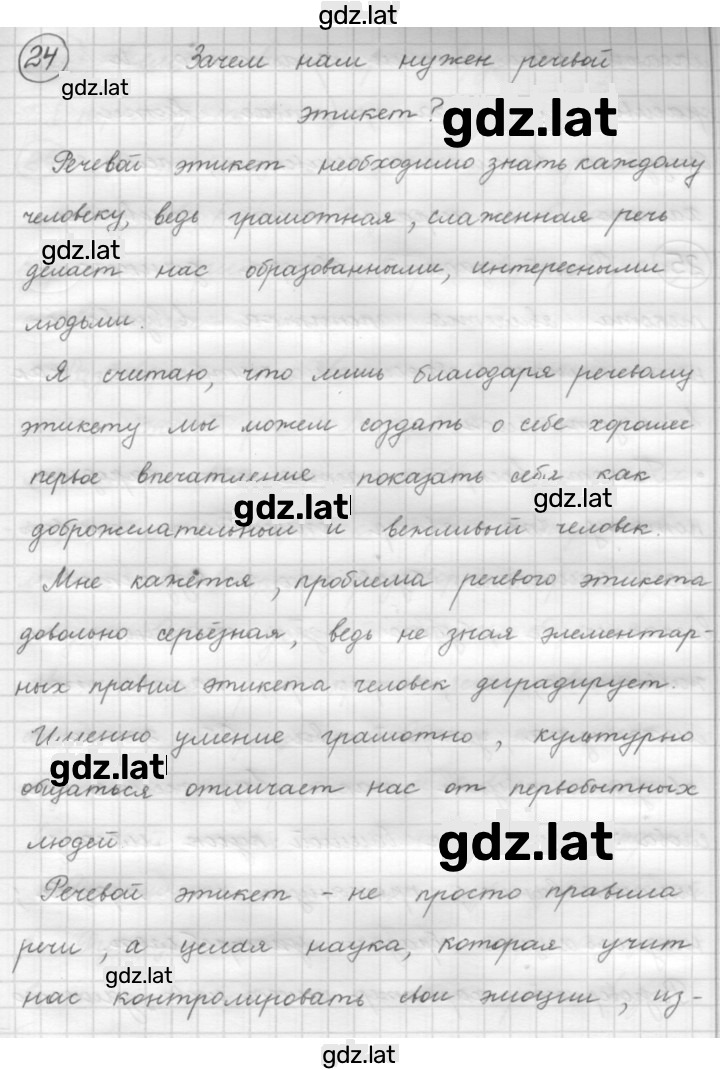 gdz.lat
24 Зачем нам нужен речевой
gdz.lat
этикет?
gdz.lat
Речевой этикет необходимо знать каждому
человеку, ведь грамотная, слаженная речь
gdz.lat
делает нас образованными, интересными
людьми.
Я считаю, что лишь благодаря речевому
этикету мы можем создать о себе хорошее
первое впечатление показать себя как
gdz.lat
gdz.lat
доброжелательный и вежливый человек.
Мне кажется, проблема речевого этикета
довольно серьёзная, ведь не зная элементар-
ных правил этикета человек деградирует.
Именно умение грамотно, культурно
gdz.lat
общаться отличает нас от первобытных
людей
gdz.lat
Речевой этикет - не просто правила
речи, а целая наука, которая учит
gdz.lat
нас контролировать свои эмоции, из-
gdz.lat